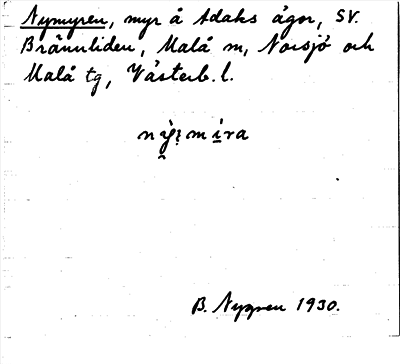 Nymyren, myr å Adaks ägor, SV.
Brännliden, Malå m, Norsjö och
Malå tg, Västerb. l.
mira
B. Nygren 1930.